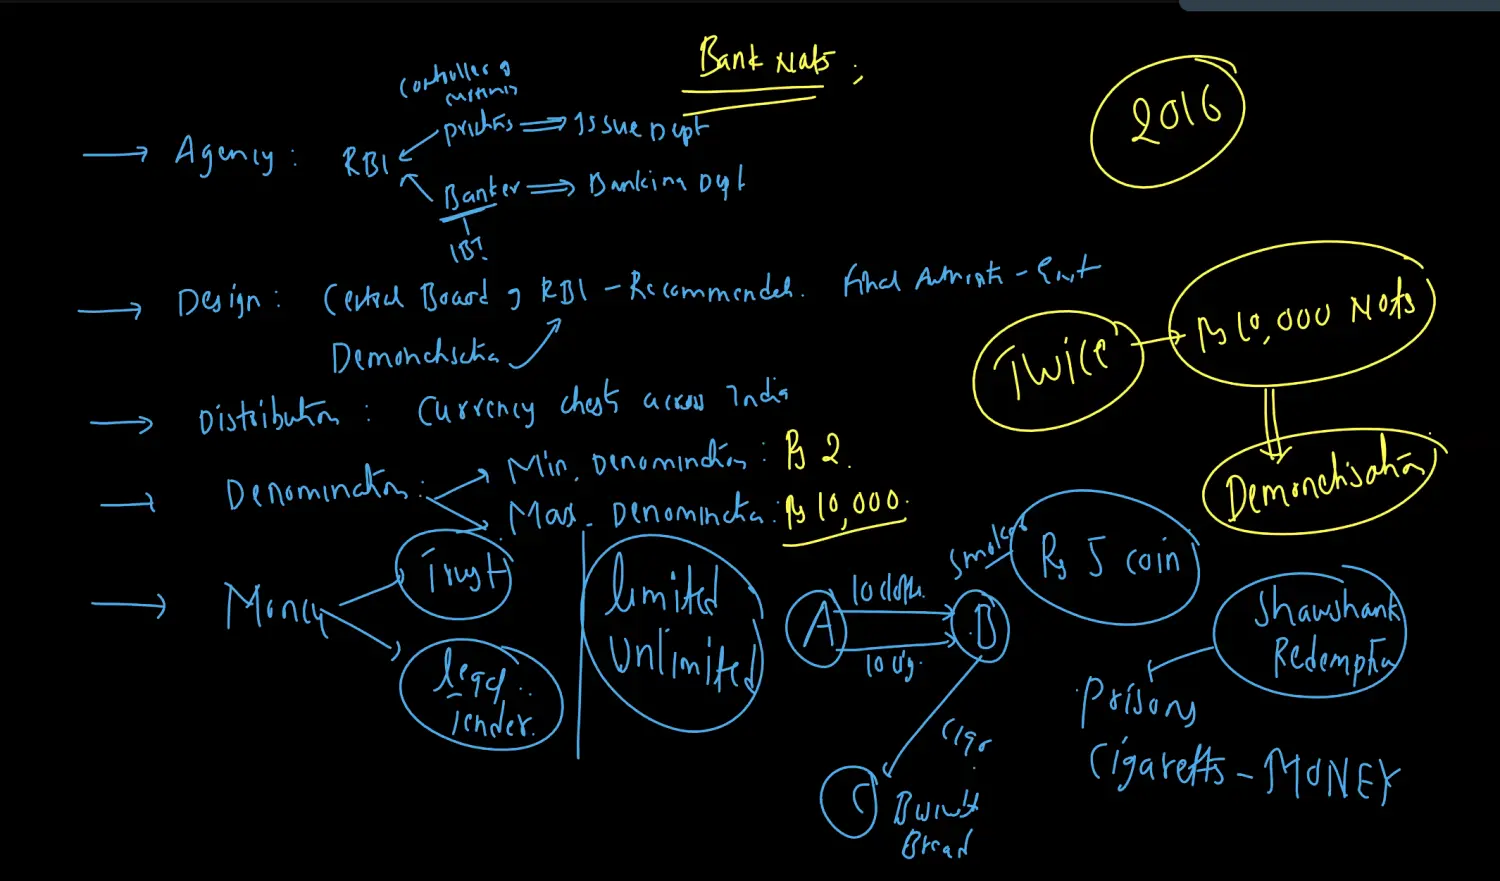 Bank Nots ;
2016
Controller of
prints ⇒ Issue Dept
→ Agency : RBI
Banker ⇒ Banking Dept
→ Design : Central Board of RBI - Recommendeh. Final Authority - Govt
Twice → Rs 10,000 Nots
Demonetisation
→ Distribution : Currency chests across India
Demonetisation
→ Denomination : Min. Denomination : Rs 2.
Max. Denomination : Rs 10,000.
→ Money
Trust
Legal
Tender.
Limited
Unlimited
A
B
smoker
Rs 5 coin
Shawshank
Redemption
Prisons
Cigaretts - MONEY
C
Bread